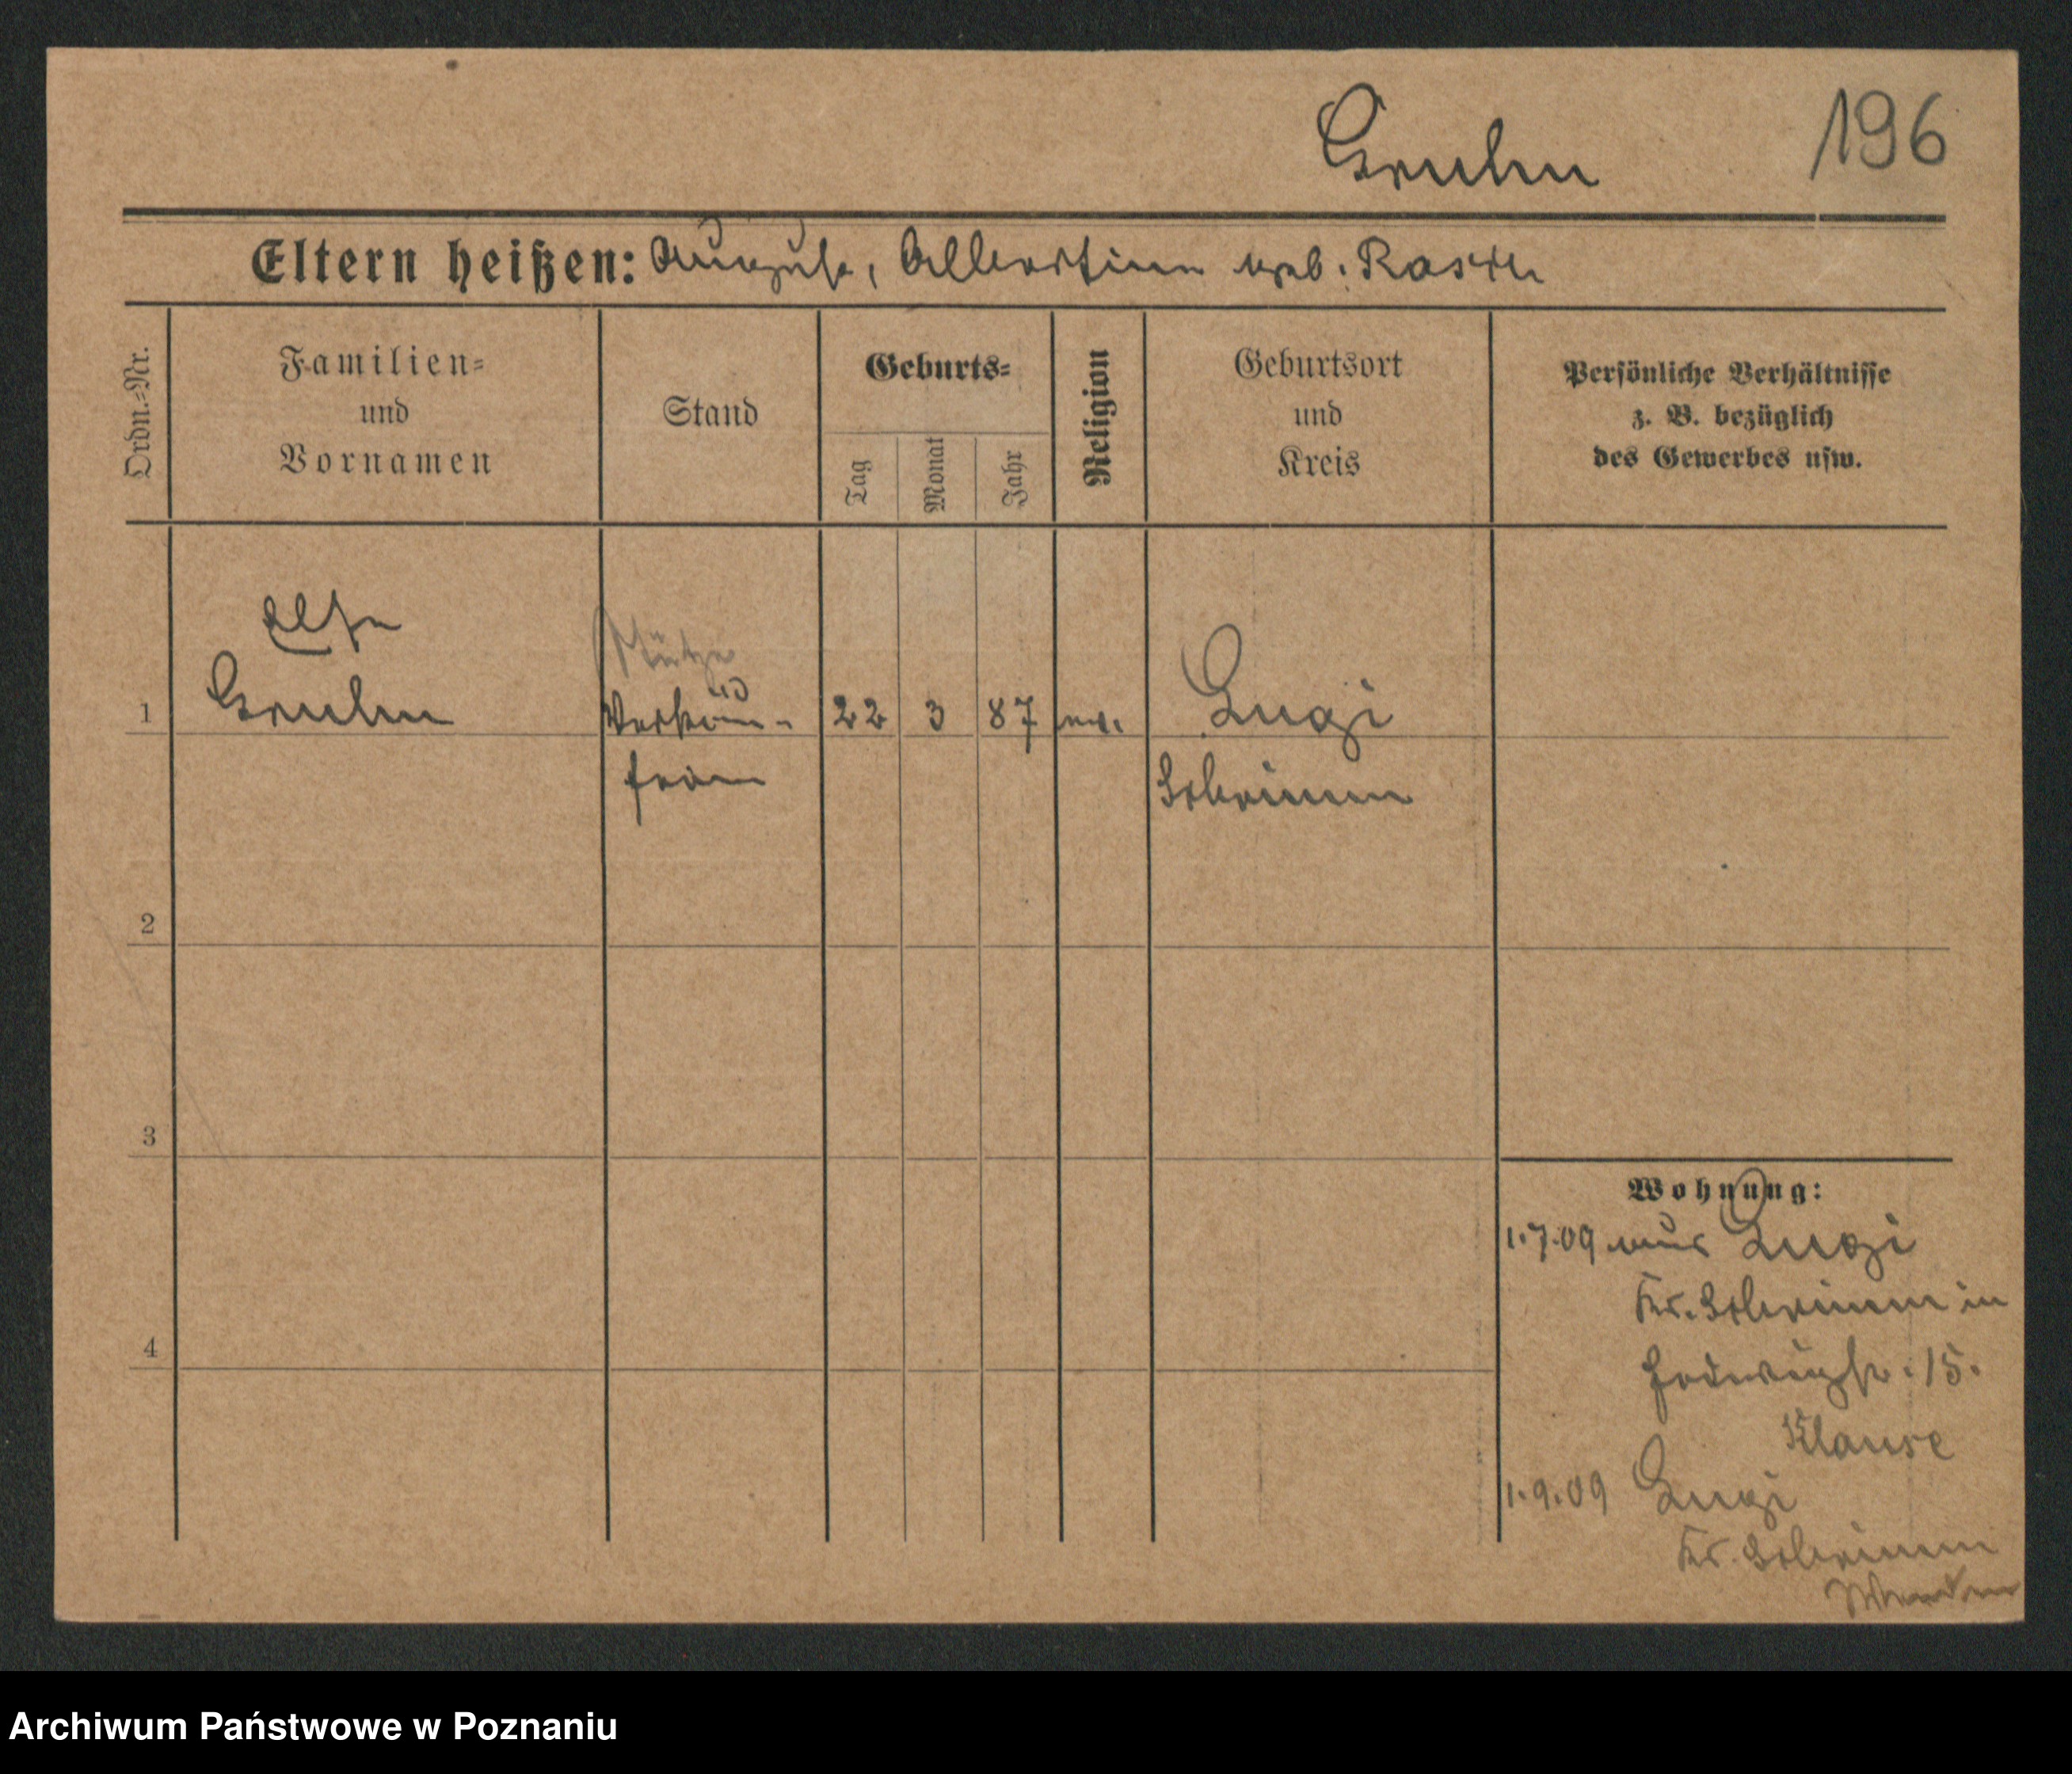 Gruhn 196
Eltern heißen: August, Albertine geb. Rasch
Ordn.-Nr.
Familien-
und
Vornamen
Stand
Geburts-
Tag
Monat
Jahr
Religion
Geburtsort
und
Kreis
Persönliche Verhältnisse
z. B. bezüglich
des Gewerbes usw.
Else
Stütze
1 Gruhn Verkäu- 22 3 87 ev. Lugi
ferin Schrimm
2
3
4
Wohnung:
1.7.09 aus Lugi
Kr. Schrimm in
Hedwigstr. 15.
Klause
1.9.09 Lugi
Kr. Schrimm
Archiwum Państwowe w Poznaniu